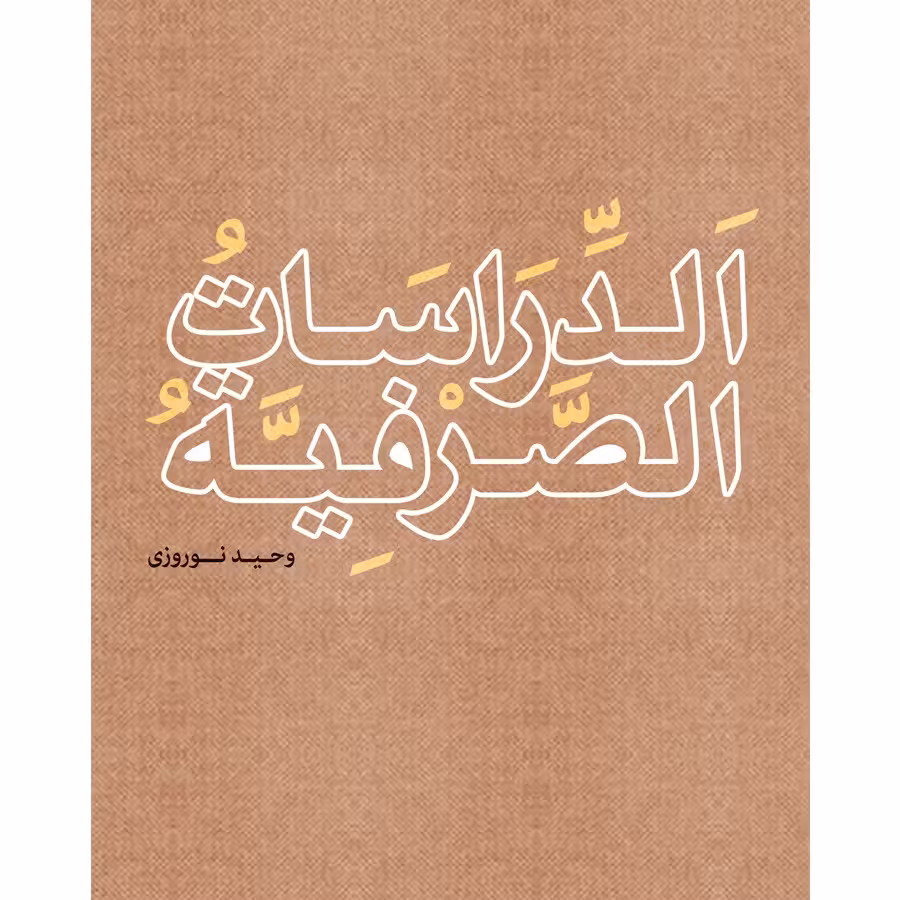 اَلدِّرَاسَاتُ
الصَّرْفِيَّةُ
وحید نوروزی